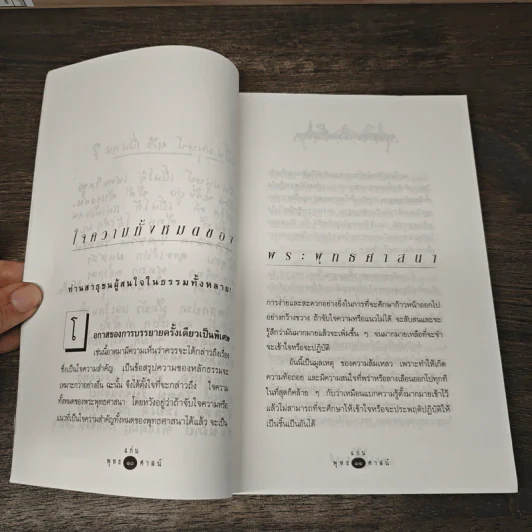 ใจความทั้งหมดของ
ท่านสาธุชนผู้สนใจในธรรมทั้งหลาย!
โอกาสของการบรรยายครั้งเดียวเป็นพิเศษ
เช่นนี้อาตมามีความเห็นว่าควรจะได้กล่าวถึงเรื่อง
ซึ่งเป็นใจความสำคัญ เป็นข้อสรุปความของหลักธรรมจะ
เหมาะกว่าอย่างอื่น ฉะนั้น จึงได้ตั้งใจที่จะกล่าวถึง ใจความ
ทั้งหมดของพระพุทธศาสนา โดยหวังอยู่ว่าถ้าจับใจความหรือ
แนวที่เป็นใจความสำคัญทั้งหมดของพุทธศาสนาได้แล้ว จะเป็น
แก่น
พุทธ ๑๐ ศาสน์
พระพุทธศาสนา
การง่ายและสะดวกอย่างยิ่งในการที่จะศึกษาก้าวหน้าออกไป
อย่างกว้างขวาง ถ้าจับใจความหรือแนวไม่ได้ จะสับสนและจะ
รู้สึกว่ามันมากมายแล้วจะเพิ่มขึ้น ๆ จนมากมายเหลือที่จะจำ
จะเข้าใจหรือจะปฏิบัติ
อันนี้เป็นมูลเหตุ ของความล้มเหลว เพราะทำให้เกิด
ความท้อถอย และมีความสนใจที่พร่าหรือลางเลือนออกไปทุกที
ในที่สุดก็คล้าย ๆ กับว่าเหมือนแบกความรู้ตั้งมากมายเข้าไว้
แล้วไม่สามารถที่จะศึกษาให้เข้าใจหรือจะประพฤติปฏิบัติให้
เป็นชิ้นเป็นอันได้
แก่น
พุทธ ๑๑ ศาสน์